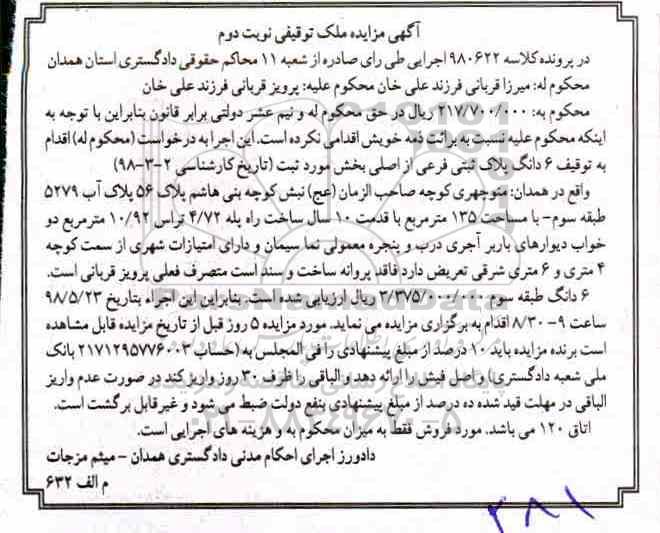 آگهی مزایده ملک توقیفی نوبت دوم
در پرونده کلاسه ۹۸۰۶۲۲ اجرایی طی رای صادره از شعبه ۱۱ محاکم حقوقی دادگستری استان همدان
محکوم له: میرزا قربانی فرزند علی خان محکوم علیه: پرویز قربانی فرزند علی خان
محکوم به: ۲۱۷/۷۰۰/۰۰۰ ریال در حق محکوم له و نیم عشر دولتی برابر قانون بنابراین با توجه به
اینکه محکوم علیه نسبت به برائت ذمه خویش اقدامی نکرده است. این اجرا به درخواست (محکوم له) اقدام
به توقیف ۶ دانگ پلاک ثبتی فرعی از اصلی بخش مورد ثبت (تاریخ کارشناسی ۲-۳-۹۸)
واقع در همدان: منوچهری کوچه صاحب الزمان (عج) نبش کوچه بنی هاشم پلاک ۵۶ پلاک آب ۵۲۷۹
طبقه سوم- با مساحت ۱۳۵ مترمربع با قدمت ۱۰ سال ساخت راه پله ۴/۷۲ تراس ۱۰/۹۲ مترمربع دو
خواب دیوارهای باربر آجری درب و پنجره معمولی نما سیمان و دارای امتیازات شهری از سمت کوچه
۴ متری و ۶ متری شرقی تعریض دارد فاقد پروانه ساخت و سند است متصرف فعلی پرویز قربانی است.
۶ دانگ طبقه سوم ۳/۳۷۵/۰۰۰/۰۰۰ ریال ارزیابی شده است. بنابراین این اجراء بتاریخ ۹۸/۵/۲۳
ساعت ۹- ۸/۳۰ اقدام به برگزاری مزایده می نماید. مورد مزایده ۵ روز قبل از تاریخ مزایده قابل مشاهده
است برنده مزایده باید ۱۰ درصد از مبلغ پیشنهادی را فی المجلس به (حساب ۲۱۷۱۲۹۵۷۷۶۰۰۳ بانک
ملی شعبه دادگستری) و اصل فیش را ارائه دهد و الباقی را ظرف ۳۰ روز واریز کند در صورت عدم واریز
الباقی در مهلت قید شده ده درصد از مبلغ پیشنهادی بنفع دولت ضبط می شود و غیرقابل برگشت است.
اتاق ۱۲۰ می باشد. مورد فروش فقط به میزان محکوم به و هزینه های اجرایی است.
دادورز اجرای احکام مدنی دادگستری همدان - میثم مزجات
م الف ۶۳۲
۳۸۱